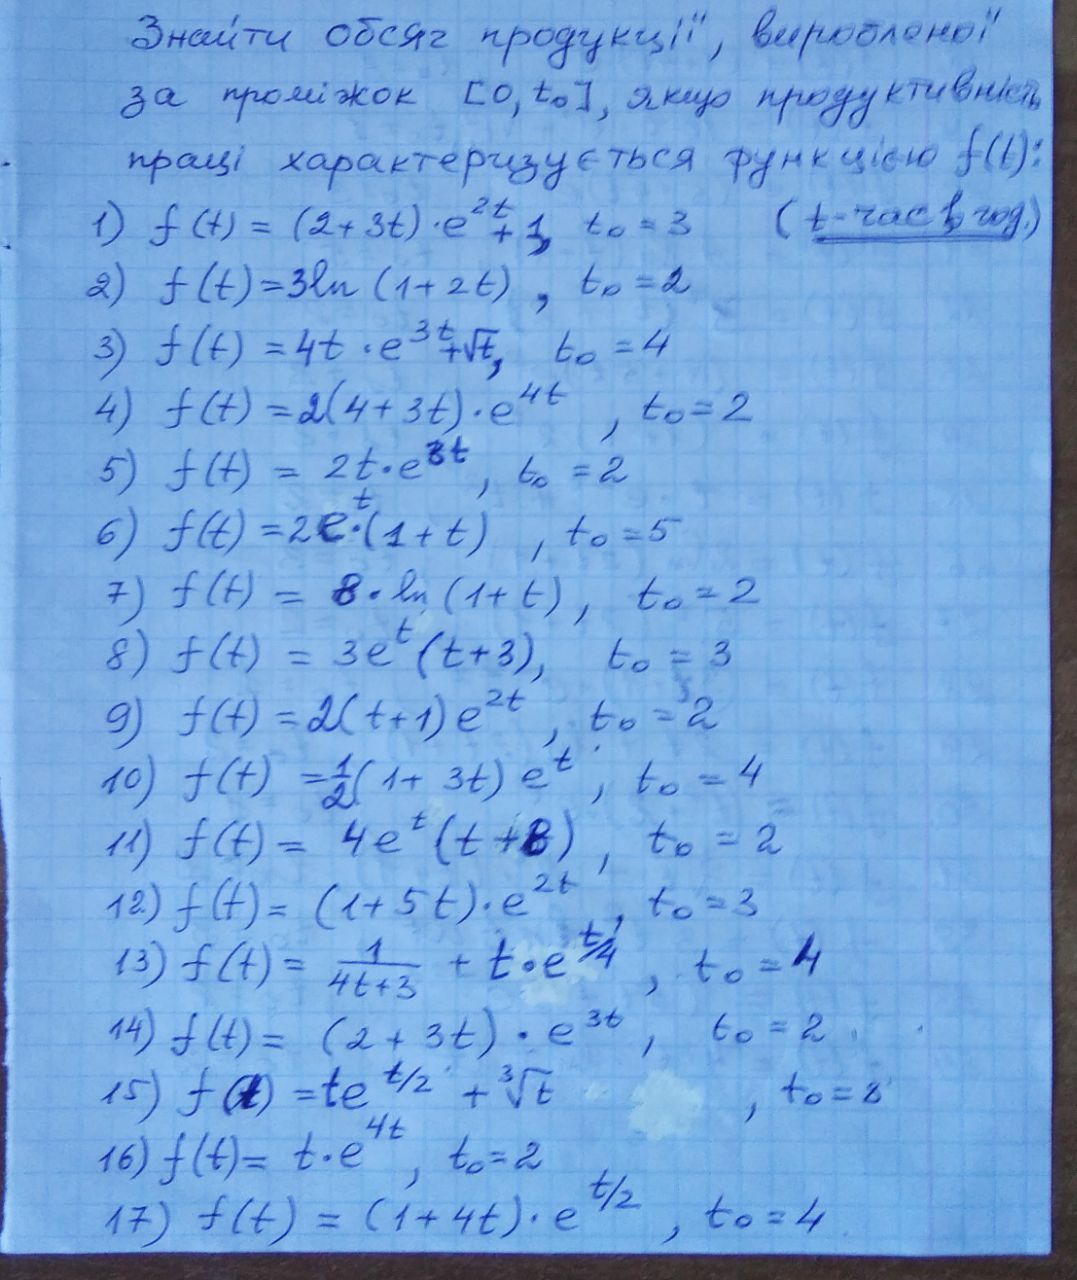 Знайти обсяг продукції, виробленої
за проміжок [0, t₀], якщо продуктивність
праці характеризується функцією f(t):
1) f(t) = (2+3t)·e^{2t}+1, t₀ = 3 (t-час в год.)
2) f(t) = 3ln(1+2t), t₀ = 2
3) f(t) = 4t·e^{3t}+√t, t₀ = 4
4) f(t) = 2(4+3t)·e^{4t}, t₀ = 2
5) f(t) = 2t·e^{3t}, t₀ = 2
6) f(t) = 2e^{t}·(1+t), t₀ = 5
7) f(t) = 8·ln(1+t), t₀ = 2
8) f(t) = 3e^{t}(t+3), t₀ = 3
9) f(t) = 2(t+1)e^{2t}, t₀ = 2
10) f(t) = 1/2(1+3t)e^{t}, t₀ = 4
11) f(t) = 4e^{t}(t+8), t₀ = 2
12) f(t) = (1+5t)·e^{2t}, t₀ = 3
13) f(t) = 1/(4t+3) + t·e^{t/4}, t₀ = 4
14) f(t) = (2+3t)·e^{3t}, t₀ = 2
15) f(t) = te^{t/2} + ∛t, t₀ = 8
16) f(t) = t·e^{4t}, t₀ = 2
17) f(t) = (1+4t)·e^{t/2}, t₀ = 4